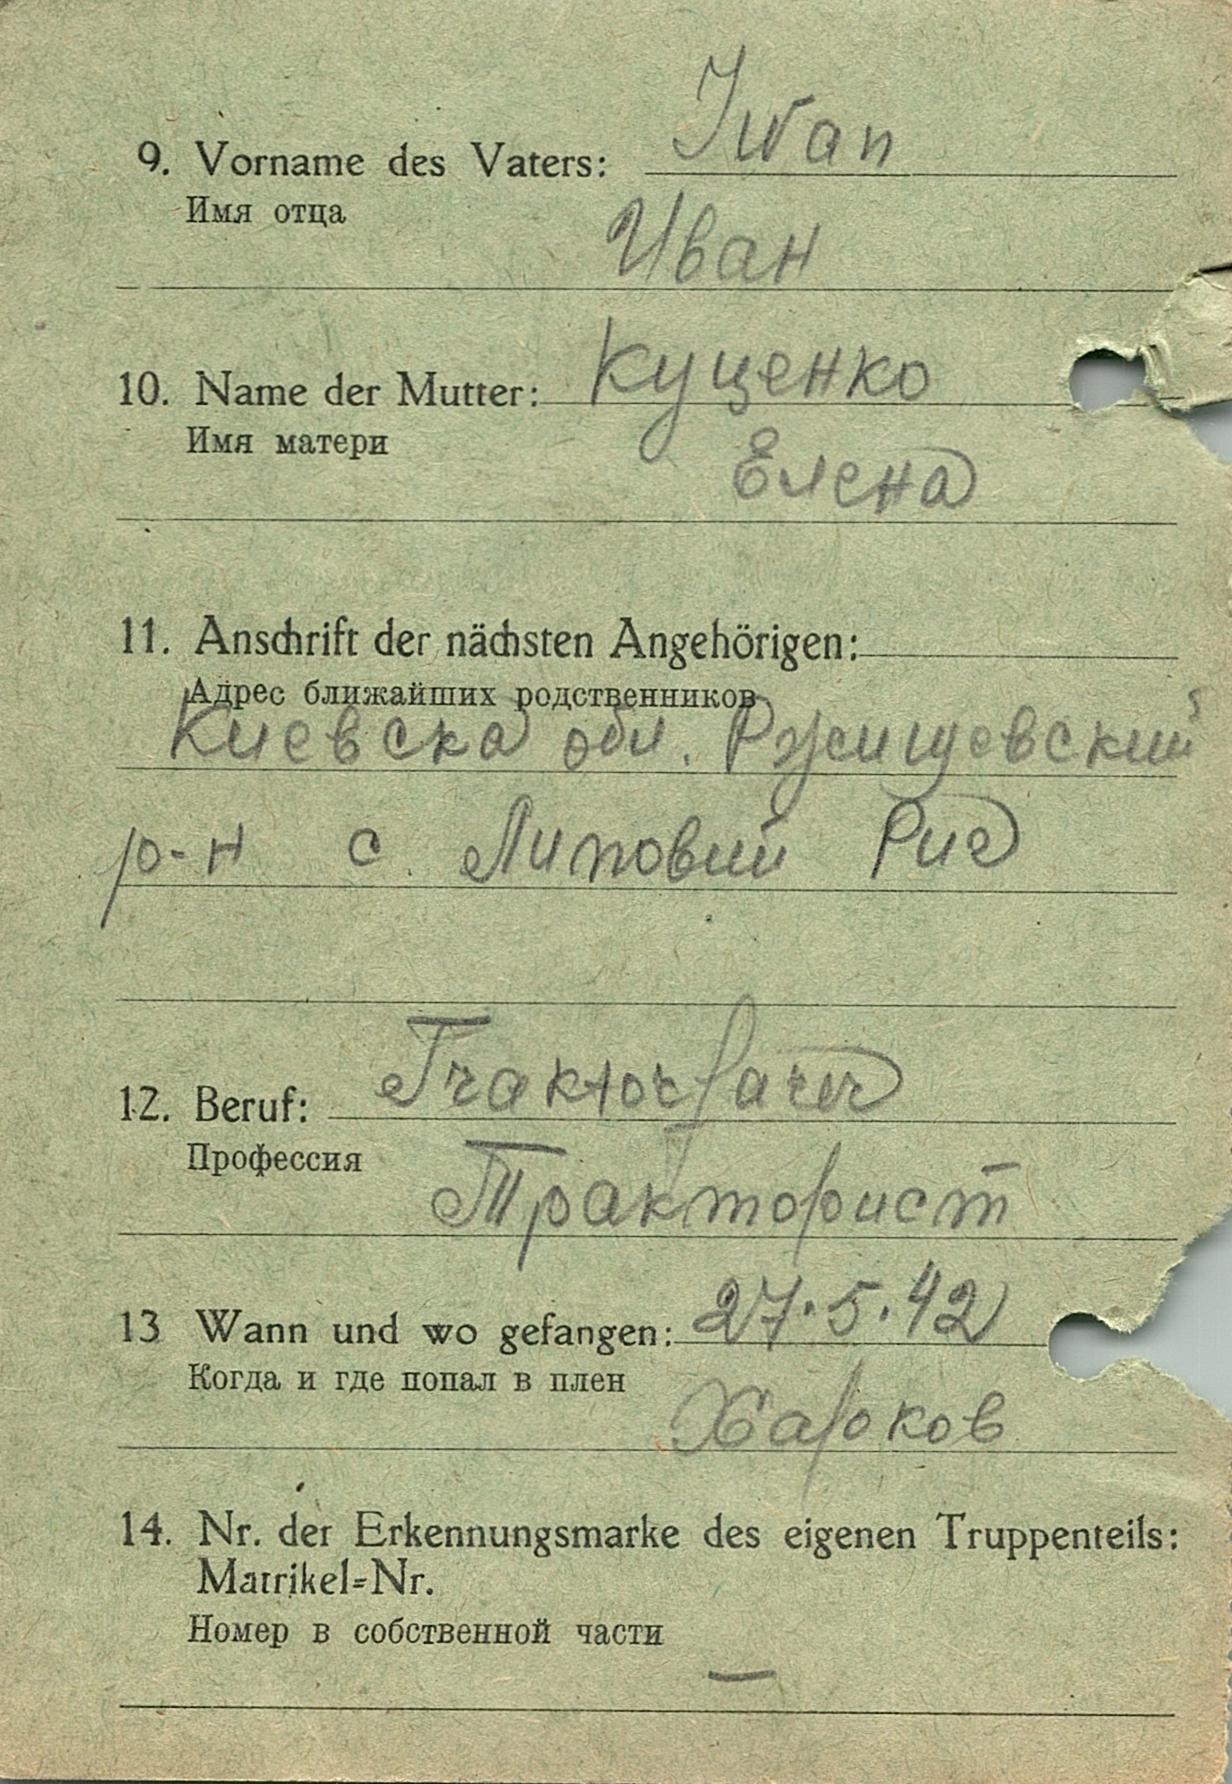 Iwan
9. Vorname des Vaters:
Имя отца
Иван
10. Name der Mutter: Куценко
Имя матери
Елена
11. Anschrift der nächsten Angehörigen:
Адрес ближайших родственников
Киевска обл. Ржищевский
р-н с. Липовий Риг
12. Beruf: Traktorfarer
Профессия
Тракторист
13 Wann und wo gefangen: 27.5.42
Когда и где попал в плен
Харков
14. Nr. der Erkennungsmarke des eigenen Truppenteils:
Matrikel=Nr.
Номер в собственной части
—